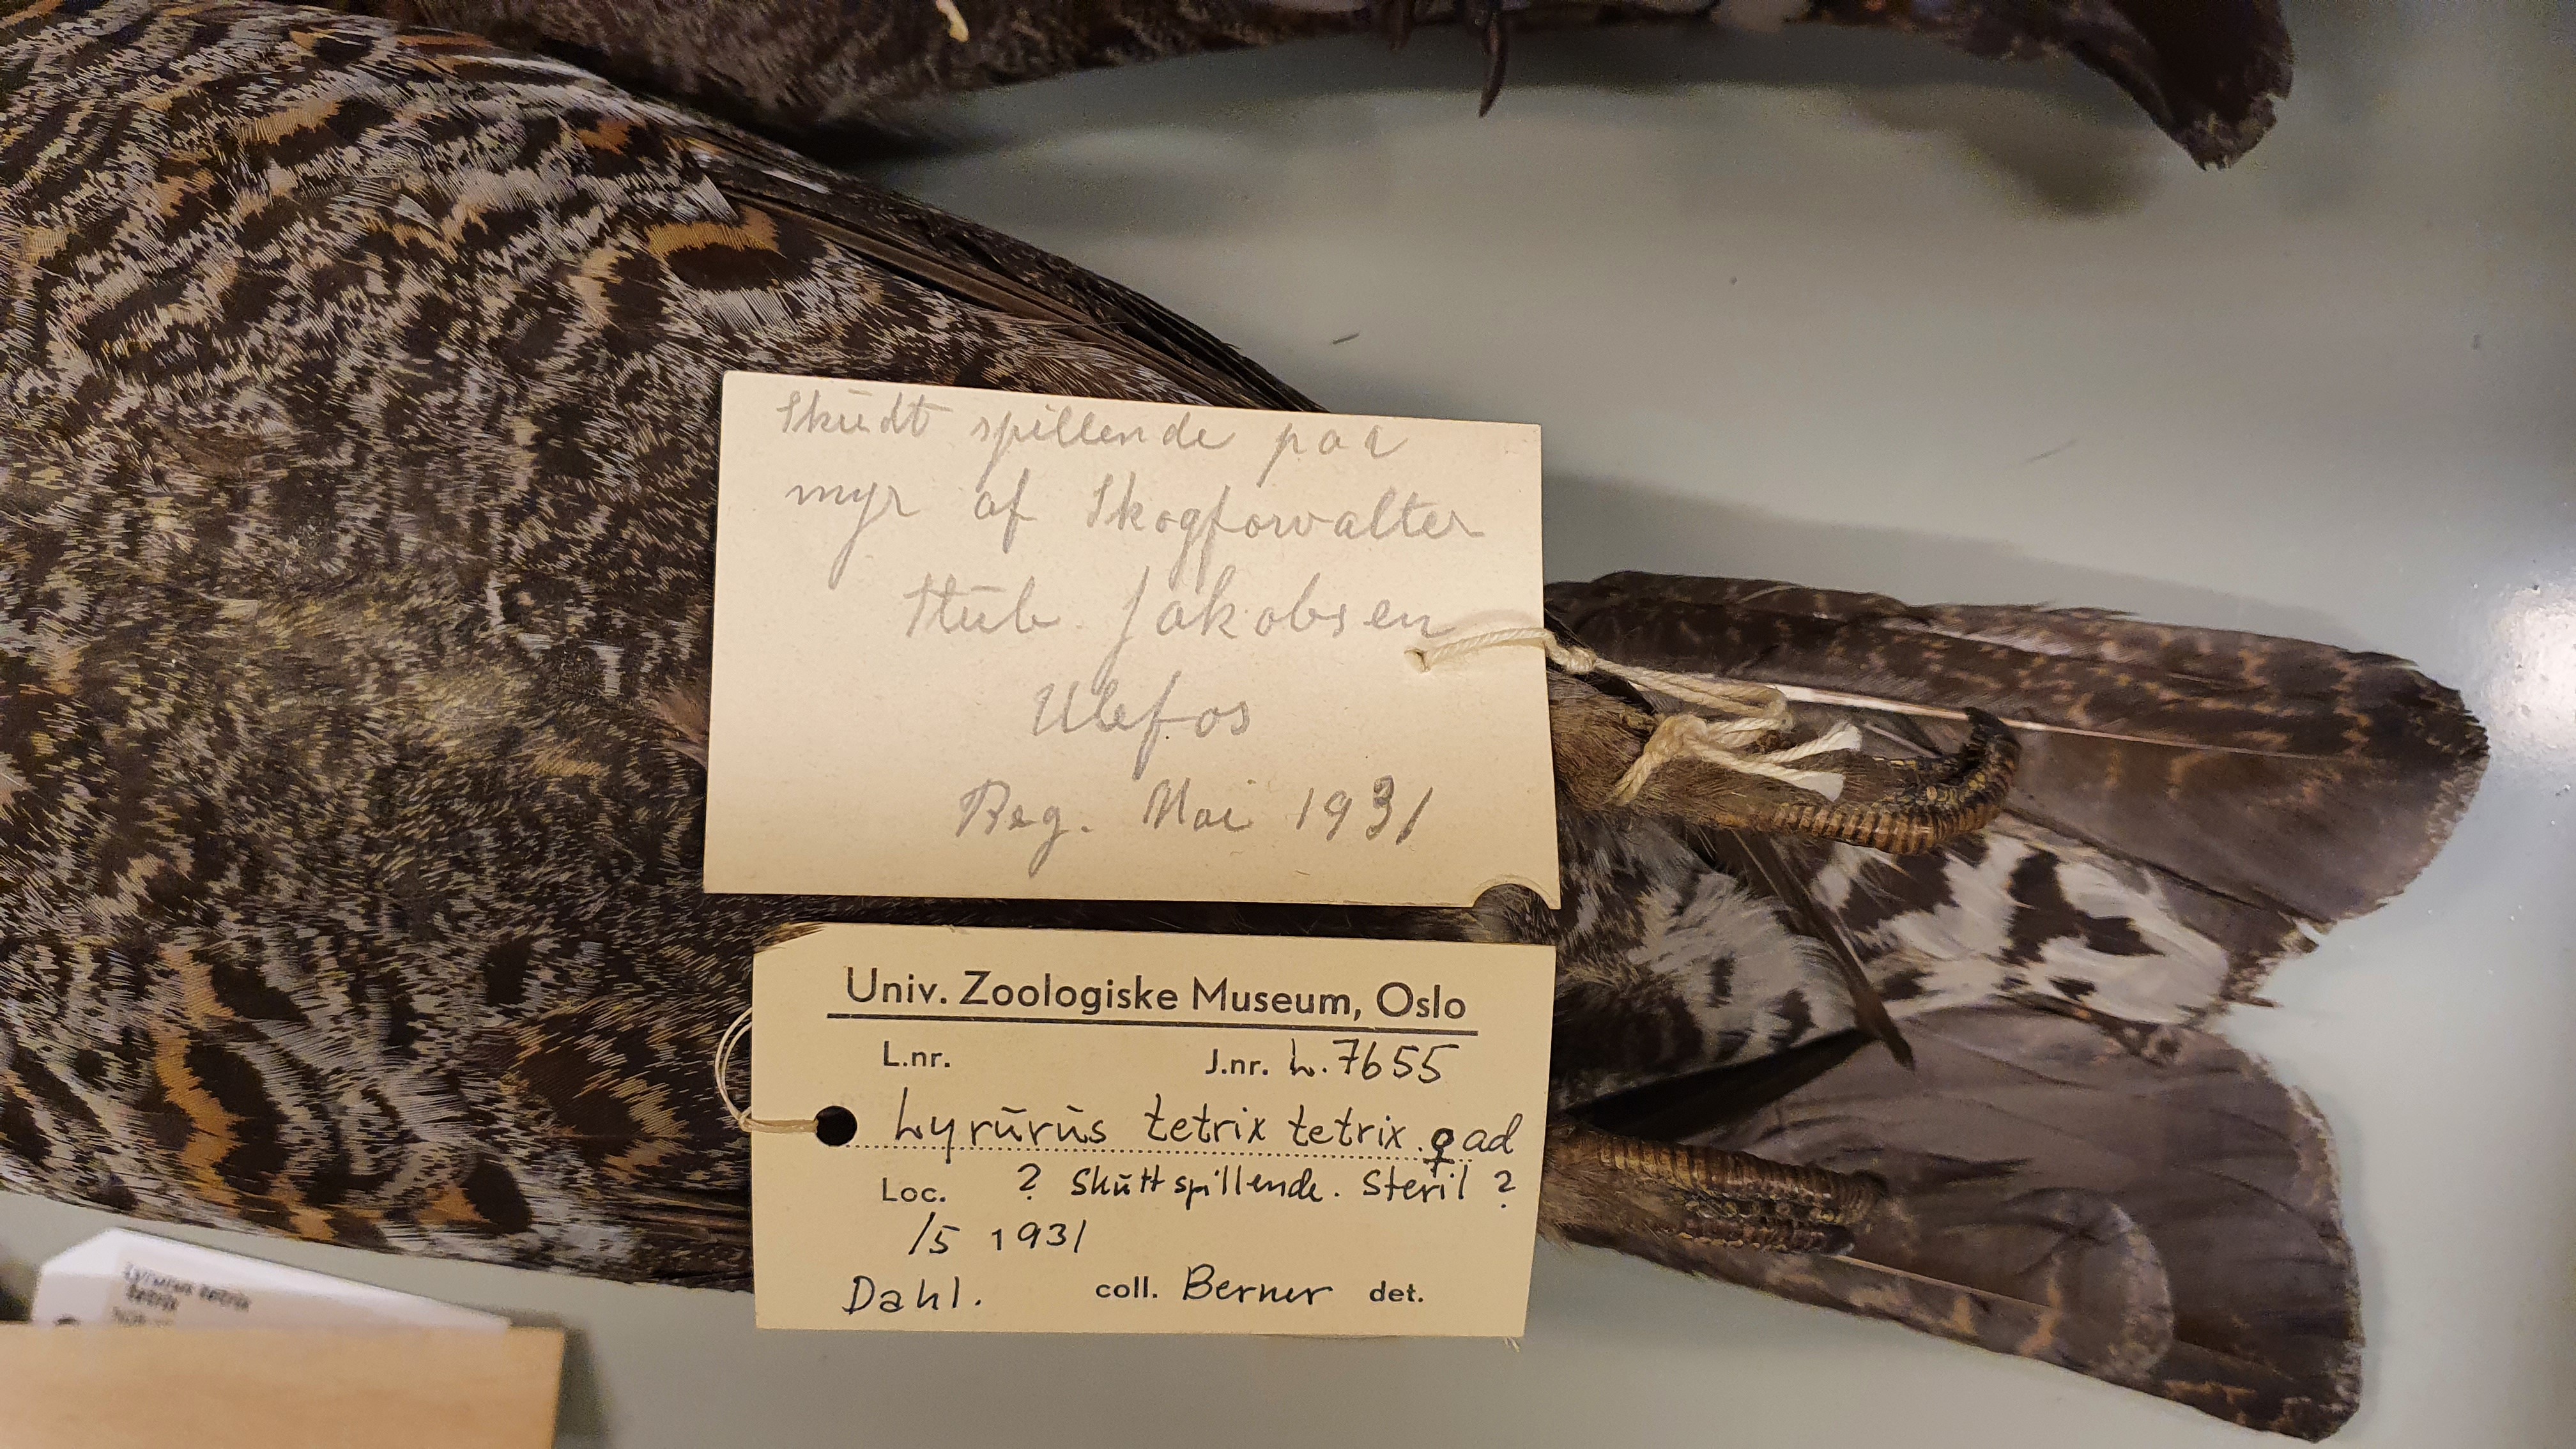 Skudt spillende paa
myr af Skogforvalter
Stub. Jakobsen
Ulefos
Beg. Mai 1931
Univ. Zoologiske Museum, Oslo
L.nr. J.nr. L.7655
Lyrurus tetrix tetrix. ♀ ad
Loc. ? Skutt spillende. Steril ?
/5 1931
Dahl. coll. Berner det.
Lyrurus tetrix
tetrix